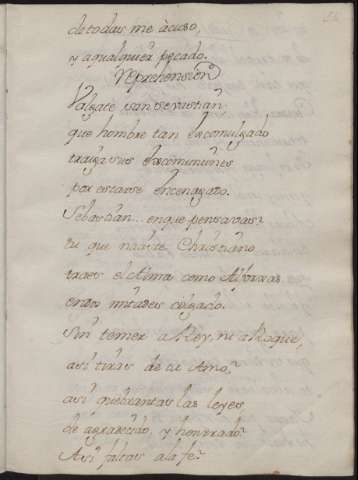 de todas me acuso,
y aqualquier pecado.
Reprehensión
Valgate san sevastian
que hombre tan Excomulgado
traiga sus Excomuniones
por estarse Encenagado.
Sebastian.. en que pensavas?
tu que naciste Christiano
traes el Alma como
cuitado.
Sin temer a Rey, ni a Roque,
asi tiras de tu Amo?
asi quebrantas las leyes
de agradecido, y honrrado?
Asi faltas a la fe?